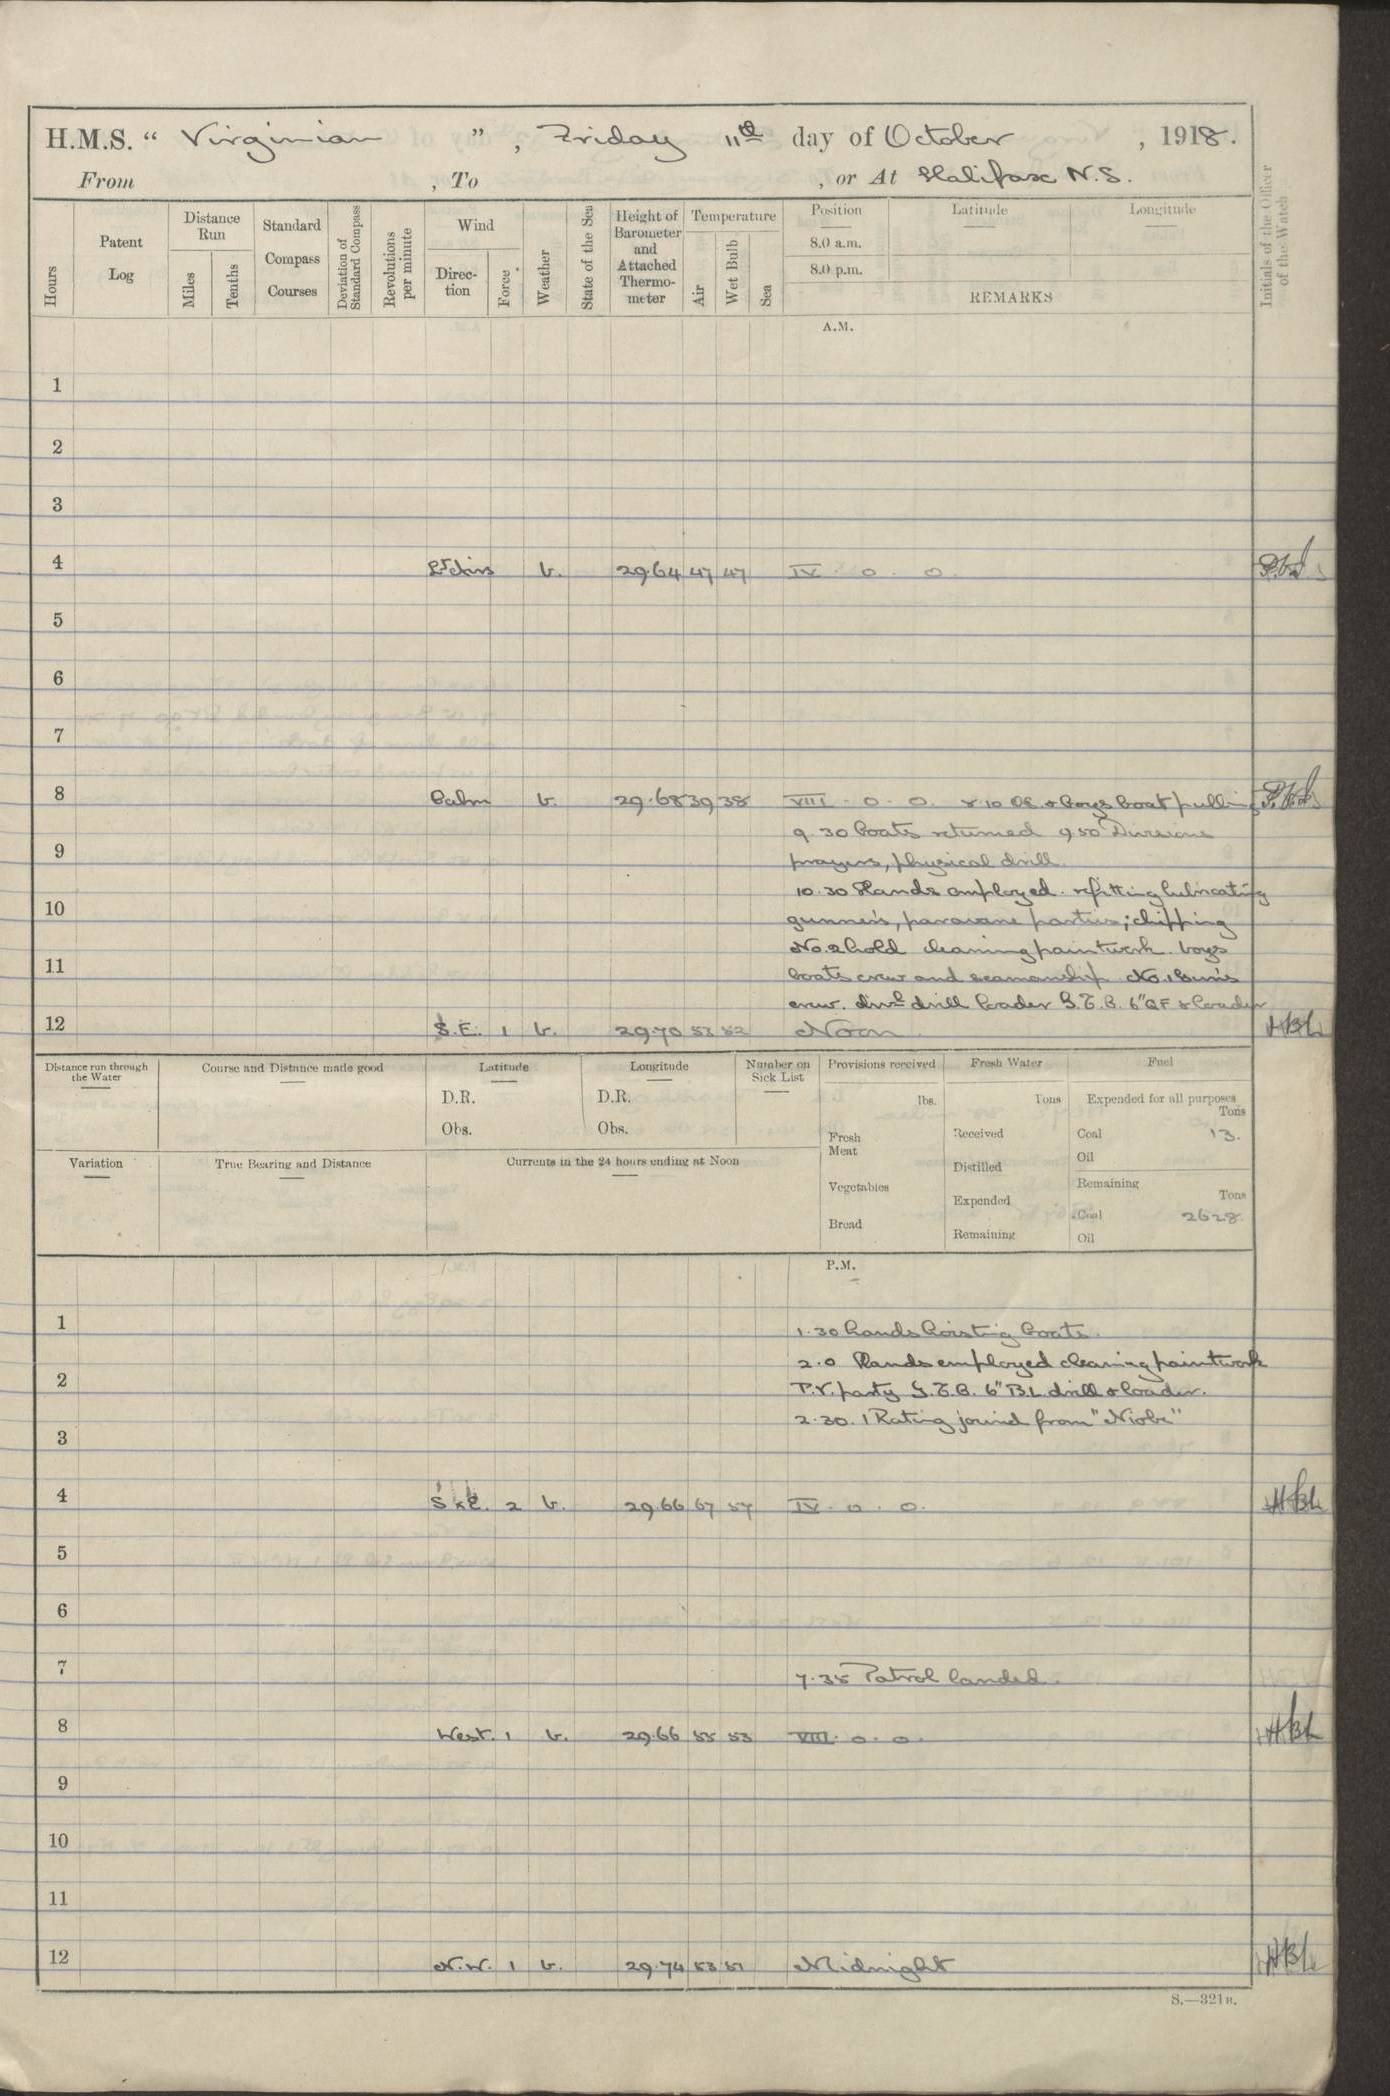 H.M.S. “ Virginian ”, Friday 11th day of October, 1918.
From , To , or At Halifax N.S.
Hours
Patent Log
Distance Run
Miles
Tenths
Standard Compass Courses
Deviation of Standard Compass
Revolutions per minute
Wind
Direc-tion
Force
Weather
State of the Sea
Height of Barometer and Attached Thermo-meter
Temperature
Air
Wet Bulb
Sea
Position
Latitude
Longitude
8.0 a.m.
8.0 p.m.
REMARKS
Initials of the Officer of the Watch
A.M.
1
2
3
4 Lt airs b. 29.64 47 47 IV. 0. 0.
5
6
7
8 Calm b. 29.68 39 38 VIII. 0. 0. 8.10 & boys boat pulling
9.30 boats returned 9.50 Divisions
9
prayers, physical drill.
10.30 Hands employed. refitting lubricating
10
gunners, paravane parties; chipping
No. 2 hold cleaning paintwork. boys
11
boats crew and seamanship No. 1 Gun's
crew. drill loader G.T.B. 6" QF & loader
12 S.E. 1 b. 29.70 53 52 Noon HBL
Distance run through the Water
Course and Distance made good
Latitude
Longitude
Number on Sick List
Provisions received
Fresh Water
Fuel
D.R.
D.R.
lbs.
Tons
Expended for all purposes
Tons
Obs.
Obs.
Fresh Meat
Received
Coal 13.
Oil
Variation
True Bearing and Distance
Currents in the 24 hours ending at Noon
Distilled
Vegetables
Remaining
Tons
Expended
Coal 2628
Bread
Remaining
Oil
P.M.
1
1.30 hands hoisting boats.
2.0 Hands employed cleaning paintwork
2
P.V. party G.T.B. 6" B.L. drill & loader.
2.30. 1 Rating joined from "Niobe"
3
4 SxE. 2 b. 29.66 67 57 IV. 0. 0. HBL
5
6
7
7.35 Patrol landed.
8 West. 1 b. 29.66 55 53 VIII. 0. 0. HBL
9
10
11
12 N.W. 1 b. 29.74 53 51 Midnight HBL
S.—321B.